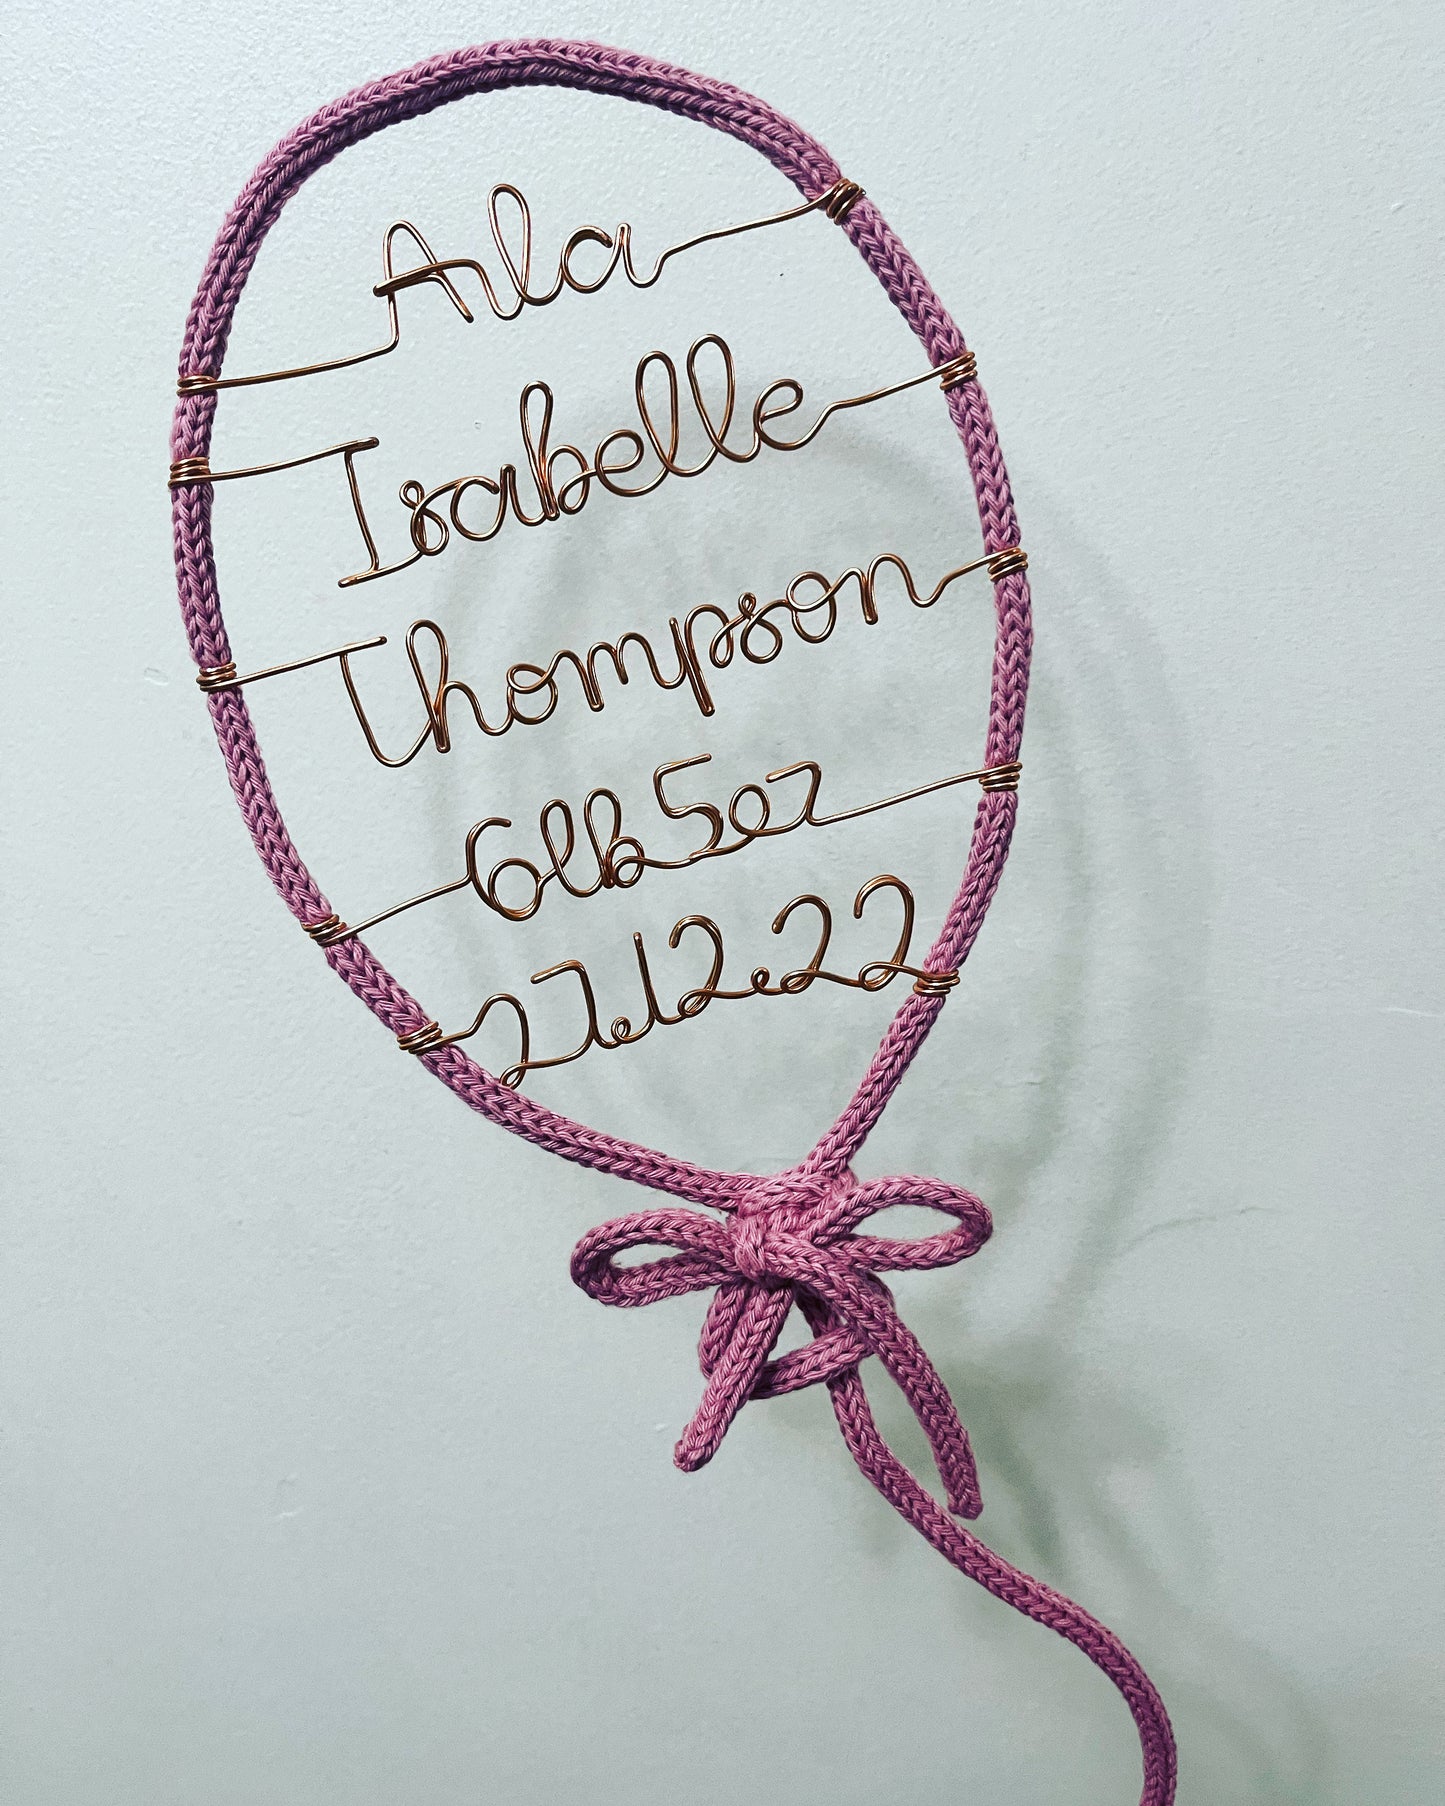 Arla
Isabelle
Thompson
6lb 5oz
27.12.22